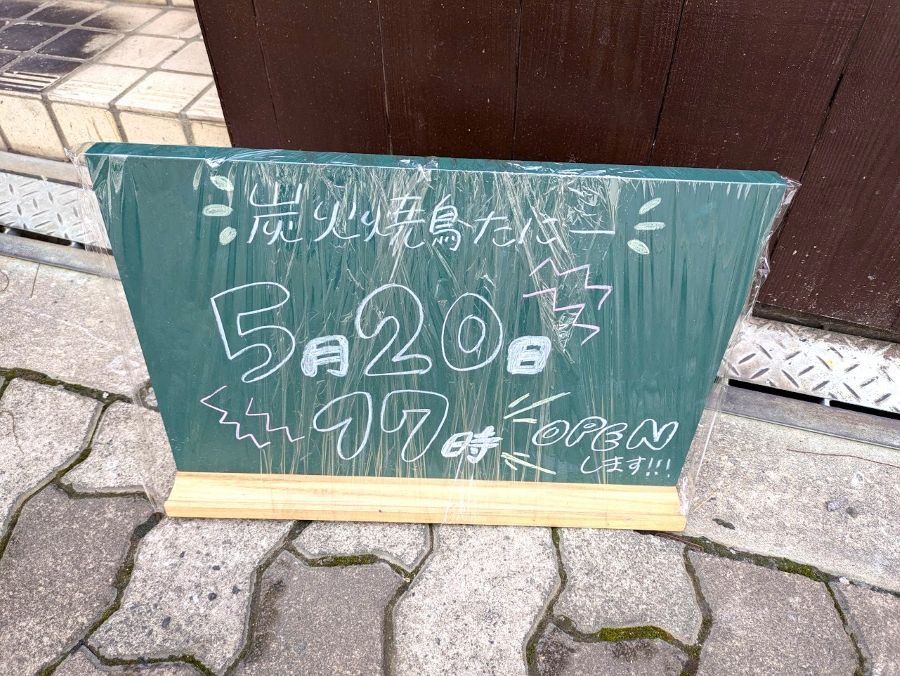 炭火焼鳥たにー
5月20日
17時 OPEN
します!!!